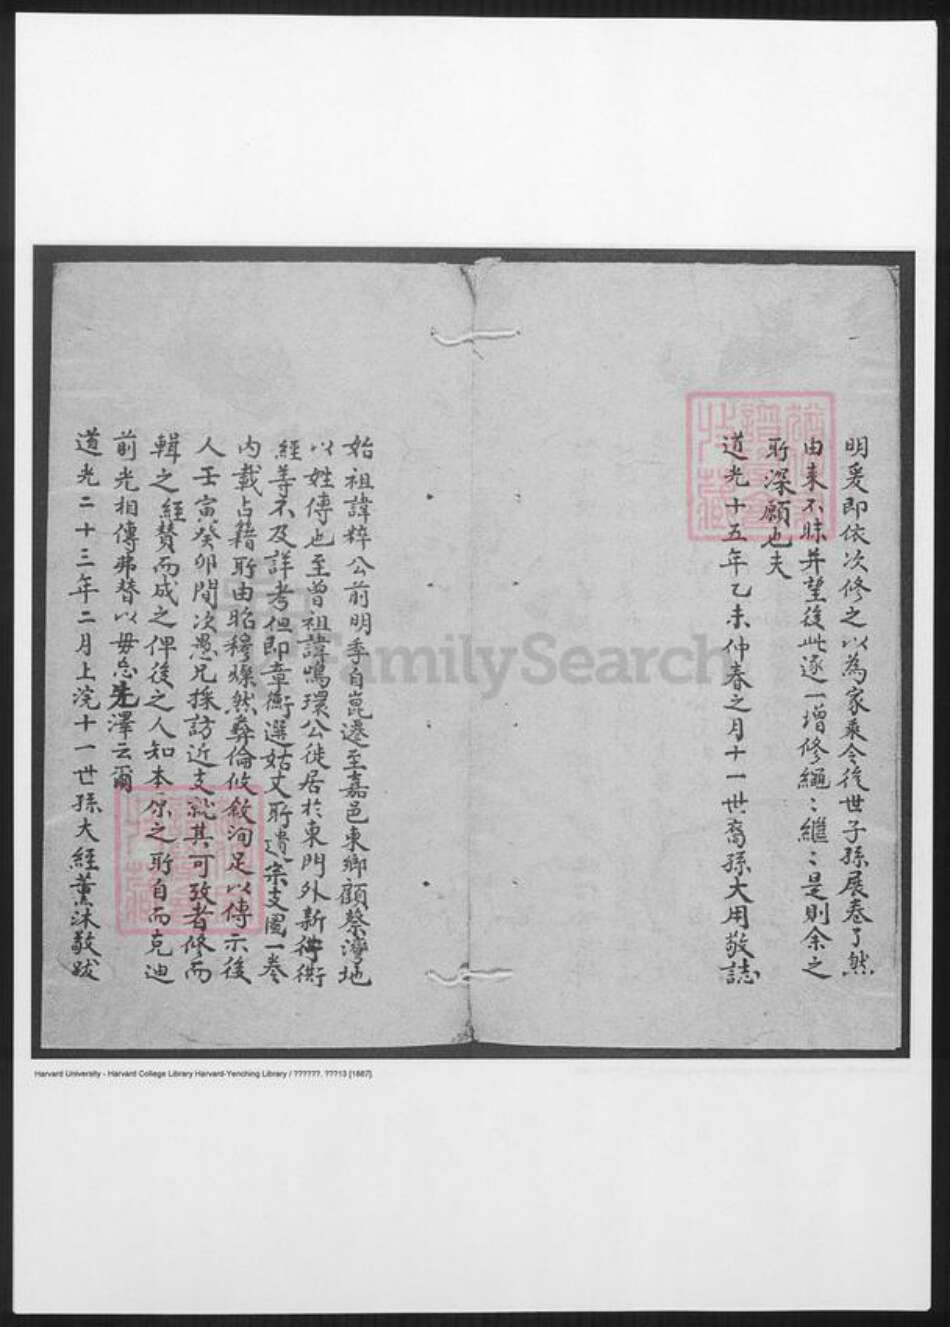 明爰即依次修之以為家乘令後世子孫展卷了然
由来不昧并望後此逐一增修繩〻繼〻是則余之
所深願也夫
道光十五年乙未仲春之月十一世裔孫大用敬誌
始祖諱粹公前明季自崑遷至嘉邑東鄉顧蔡灣地
以姓傳也至曾祖諱鳴環公徙居於東門外新街
經等不及詳考但即章衡選姑丈所遺宗支圖一卷
内載占籍所由昭穆燦然彝倫攸敘洵足以傳示後
人壬寅癸卯間次愚兄採訪近支就其可攷者修而
輯之經贊而成之俾後之人知本源之所自而克迪
前光相傳弗替以毋忘先澤云爾
道光二十三年二月上浣十一世孫大經薰沐敬跋
FamilySearch
Harvard University - Harvard College Library Harvard-Yenching Library / ??????. ???13 [1887].